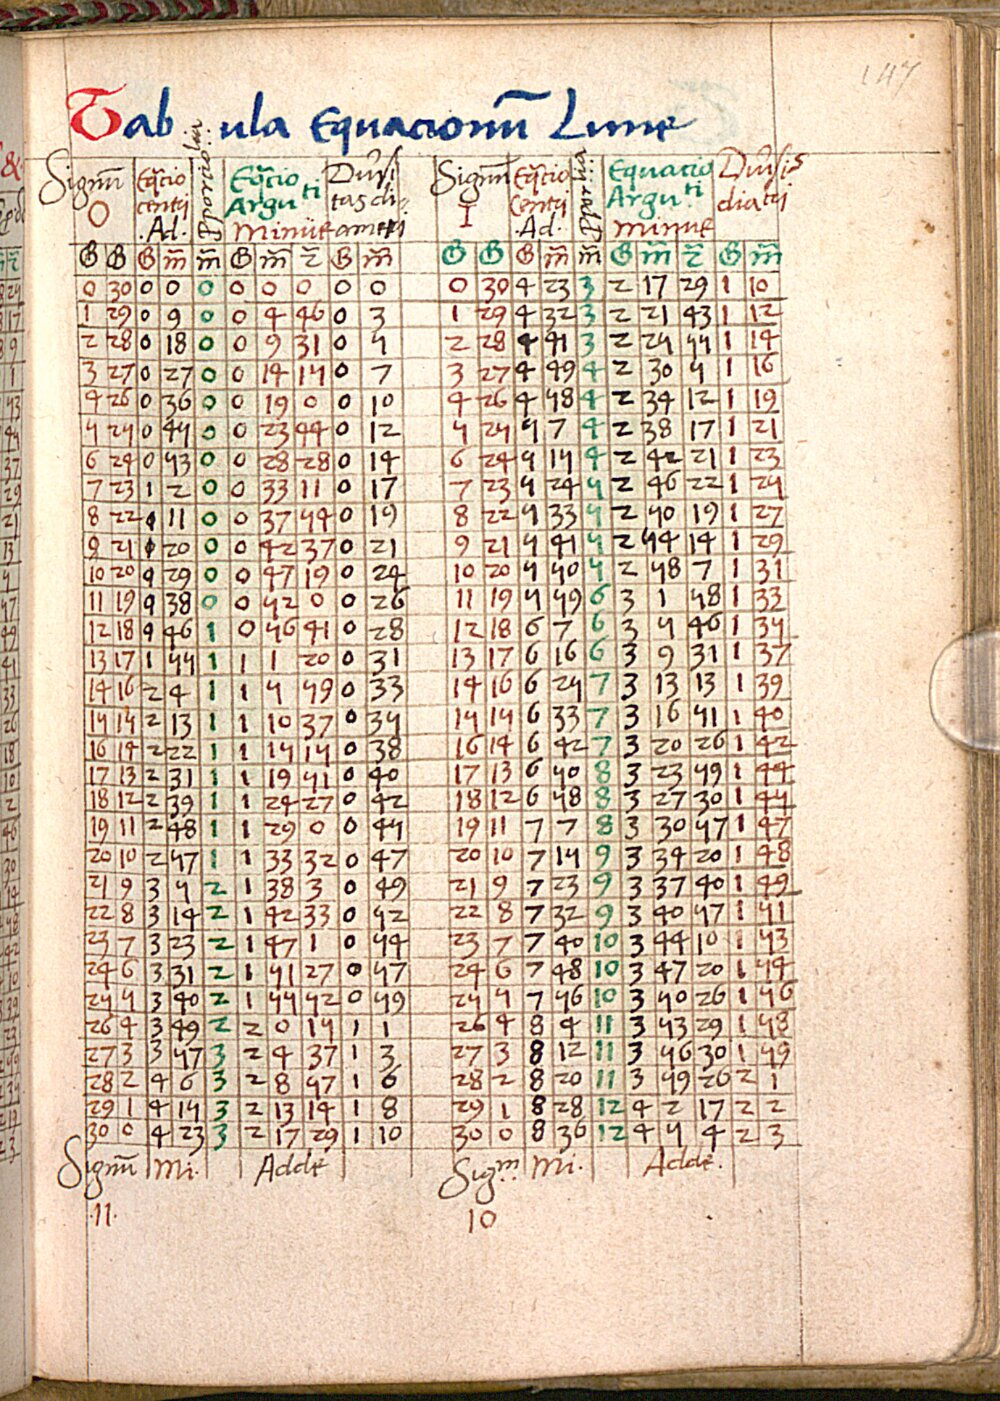 147
Tabula Equacionū Lune
Signū Eq̄cio centri Ad. Eq̄cio Argu ti Minue Diu̇si tas di ametri Signū Eq̄cio Centri .Ad. Equacio Argu ti minue Diu̇sis diatri
0 I
G G G m̄ m̄ G m̄ z̄ G m̄ G G G m̄ m̄ G m̄ z̄ G m̄
0 30 0 0 0 0 0 0 0 0 0 30 4 23 3 2 17 29 1 10
1 29 0 9 0 0 4 46 0 3 1 29 4 32 3 2 21 43 1 12
2 28 0 18 0 0 9 31 0 5 2 28 4 41 3 2 25 55 1 14
3 27 0 27 0 0 14 15 0 7 3 27 4 49 4 2 30 5 1 16
4 26 0 36 0 0 19 0 0 10 4 26 4 58 4 2 34 12 1 19
5 25 0 45 0 0 23 44 0 12 5 25 5 7 4 2 38 17 1 21
6 24 0 53 0 0 28 28 0 14 6 24 5 15 4 2 42 21 1 23
7 23 1 2 0 0 33 11 0 17 7 23 5 24 5 2 46 22 1 25
8 22 1 11 0 0 37 54 0 19 8 22 5 33 5 2 50 19 1 27
9 21 1 20 0 0 42 37 0 21 9 21 5 41 5 2 54 14 1 29
10 20 1 29 0 0 47 19 0 24 10 20 5 50 5 2 58 7 1 31
11 19 1 38 0 0 52 0 0 26 11 19 5 59 6 3 1 58 1 33
12 18 1 46 1 0 56 41 0 28 12 18 6 7 6 3 5 46 1 35
13 17 1 55 1 1 1 20 0 31 13 17 6 16 6 3 9 31 1 37
14 16 2 4 1 1 5 59 0 33 14 16 6 25 7 3 13 13 1 39
15 15 2 13 1 1 10 37 0 35 15 15 6 33 7 3 16 51 1 40
16 14 2 22 1 1 15 15 0 38 16 14 6 42 7 3 20 26 1 42
17 13 2 31 1 1 19 51 0 40 17 13 6 50 8 3 23 59 1 44
18 12 2 39 1 1 24 27 0 42 18 12 6 58 8 3 27 30 1 45
19 11 2 48 1 1 29 0 0 45 19 11 7 7 8 3 30 57 1 47
20 10 2 57 1 1 33 32 0 47 20 10 7 15 9 3 34 20 1 48
21 9 3 5 2 1 38 3 0 49 21 9 7 23 9 3 37 40 1 49
22 8 3 14 2 1 42 33 0 52 22 8 7 32 9 3 40 57 1 51
23 7 3 23 2 1 47 1 0 54 23 7 7 40 10 3 44 10 1 53
24 6 3 31 2 1 51 27 0 57 24 6 7 48 10 3 47 20 1 54
25 5 3 40 2 1 55 52 0 59 25 5 7 56 10 3 50 26 1 56
26 4 3 49 2 2 0 15 1 1 26 4 8 4 11 3 53 29 1 58
27 3 3 57 3 2 4 37 1 3 27 3 8 12 11 3 56 30 1 59
28 2 4 6 3 2 8 57 1 6 28 2 8 20 11 3 59 26 2 1
29 1 4 15 3 2 13 14 1 8 29 1 8 28 12 4 2 17 2 2
30 0 4 23 3 2 17 29 1 10 30 0 8 36 12 4 5 4 2 3
Signū Mi. Adde Sigm̄ Mi. Adde.
.11. 10